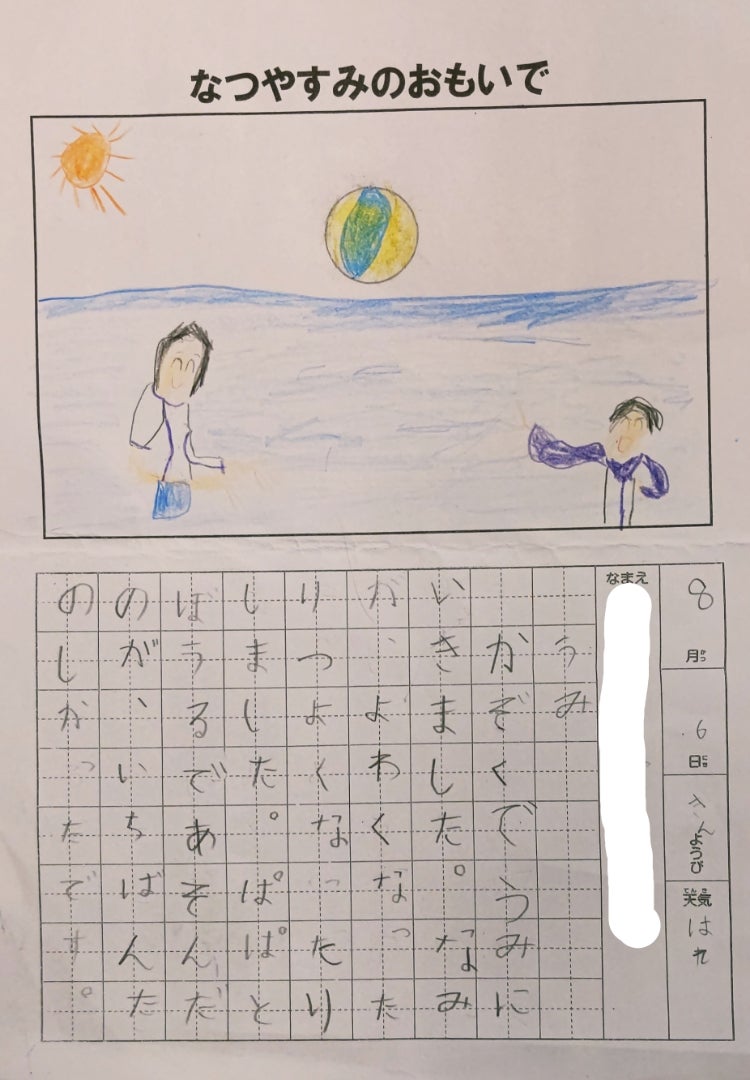 なつやすみのおもいで
8月がつ
6日にち
ようび
天気てんき はれ
なまえ
うみ
かぞくでうみに
いきました。なみ
が、よわくなった
りつよくなったり
しました。ぱぱと
ぼうるであそんだ
のが、いちばんた
のしかったです。